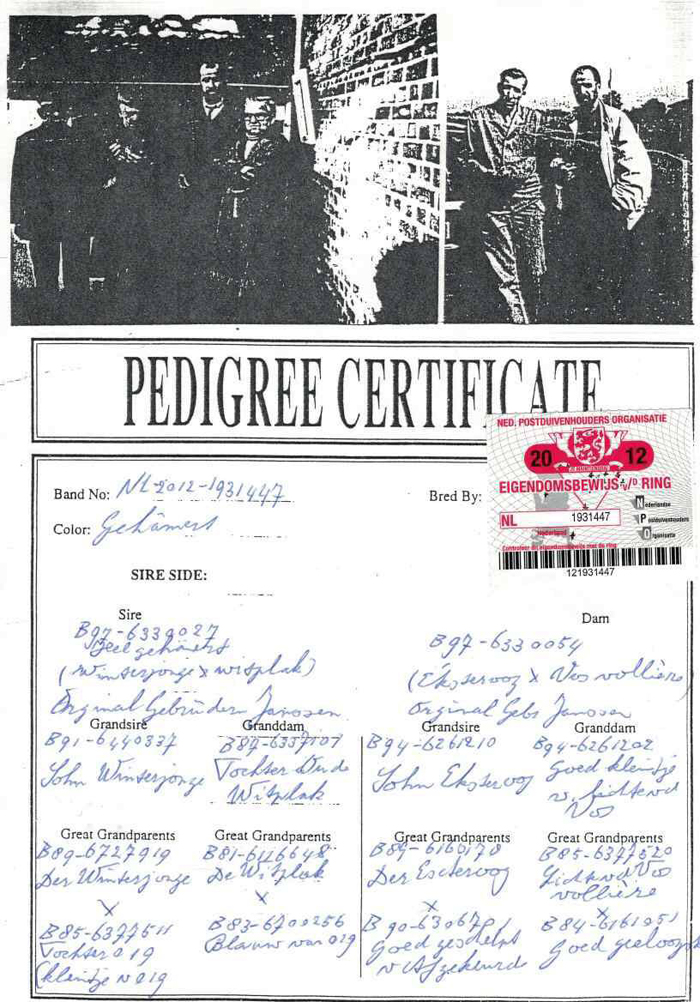 PEDIGREE CERTIFICATE
NED. POSTDUIVENHOUDERS ORGANISATIE
20 12
EIGENDOMSBEWIJS v/D RING
NL 1931447
Nederlandse
Postduivenhouders
Organisatie
Nederland
Controleer dit eigendomsbewijs met de ring
121931447
Band No: NL-2012-1931447
Bred By:
Color: Gehämert
SIRE SIDE:
Sire
B97-6339027
Geel gehämert
(Winterjonge x witplak)
Orginal Gebrüder Janssen
Dam
B97-6330054
(Eksteroog x Vos vollière)
Orginal Gebr Janssen
Grandsire
B91-6440337
Sohn Winterjonge
Granddam
B87-6337107
Tochter Oude
Witplak
Grandsire
B94-6261210
Sohn Eksteroog
Granddam
B94-6261202
Goed kleintje
v. Lichte vd
Vos
Great Grandparents
B89-6727919
Der Winterjonge
x
B85-6377511
Tochter 019
(kleintje v 019
Great Grandparents
B81-6416648
De Witplak
x
B83-6700256
Blauw van 019
Great Grandparents
Der Esteroog
x
Goed geschelpt
v Afgekeurd
Great Grandparents
B85-6377520
Lichte vd Vos
vollière
x
B84-6161051
Goed geeloogd